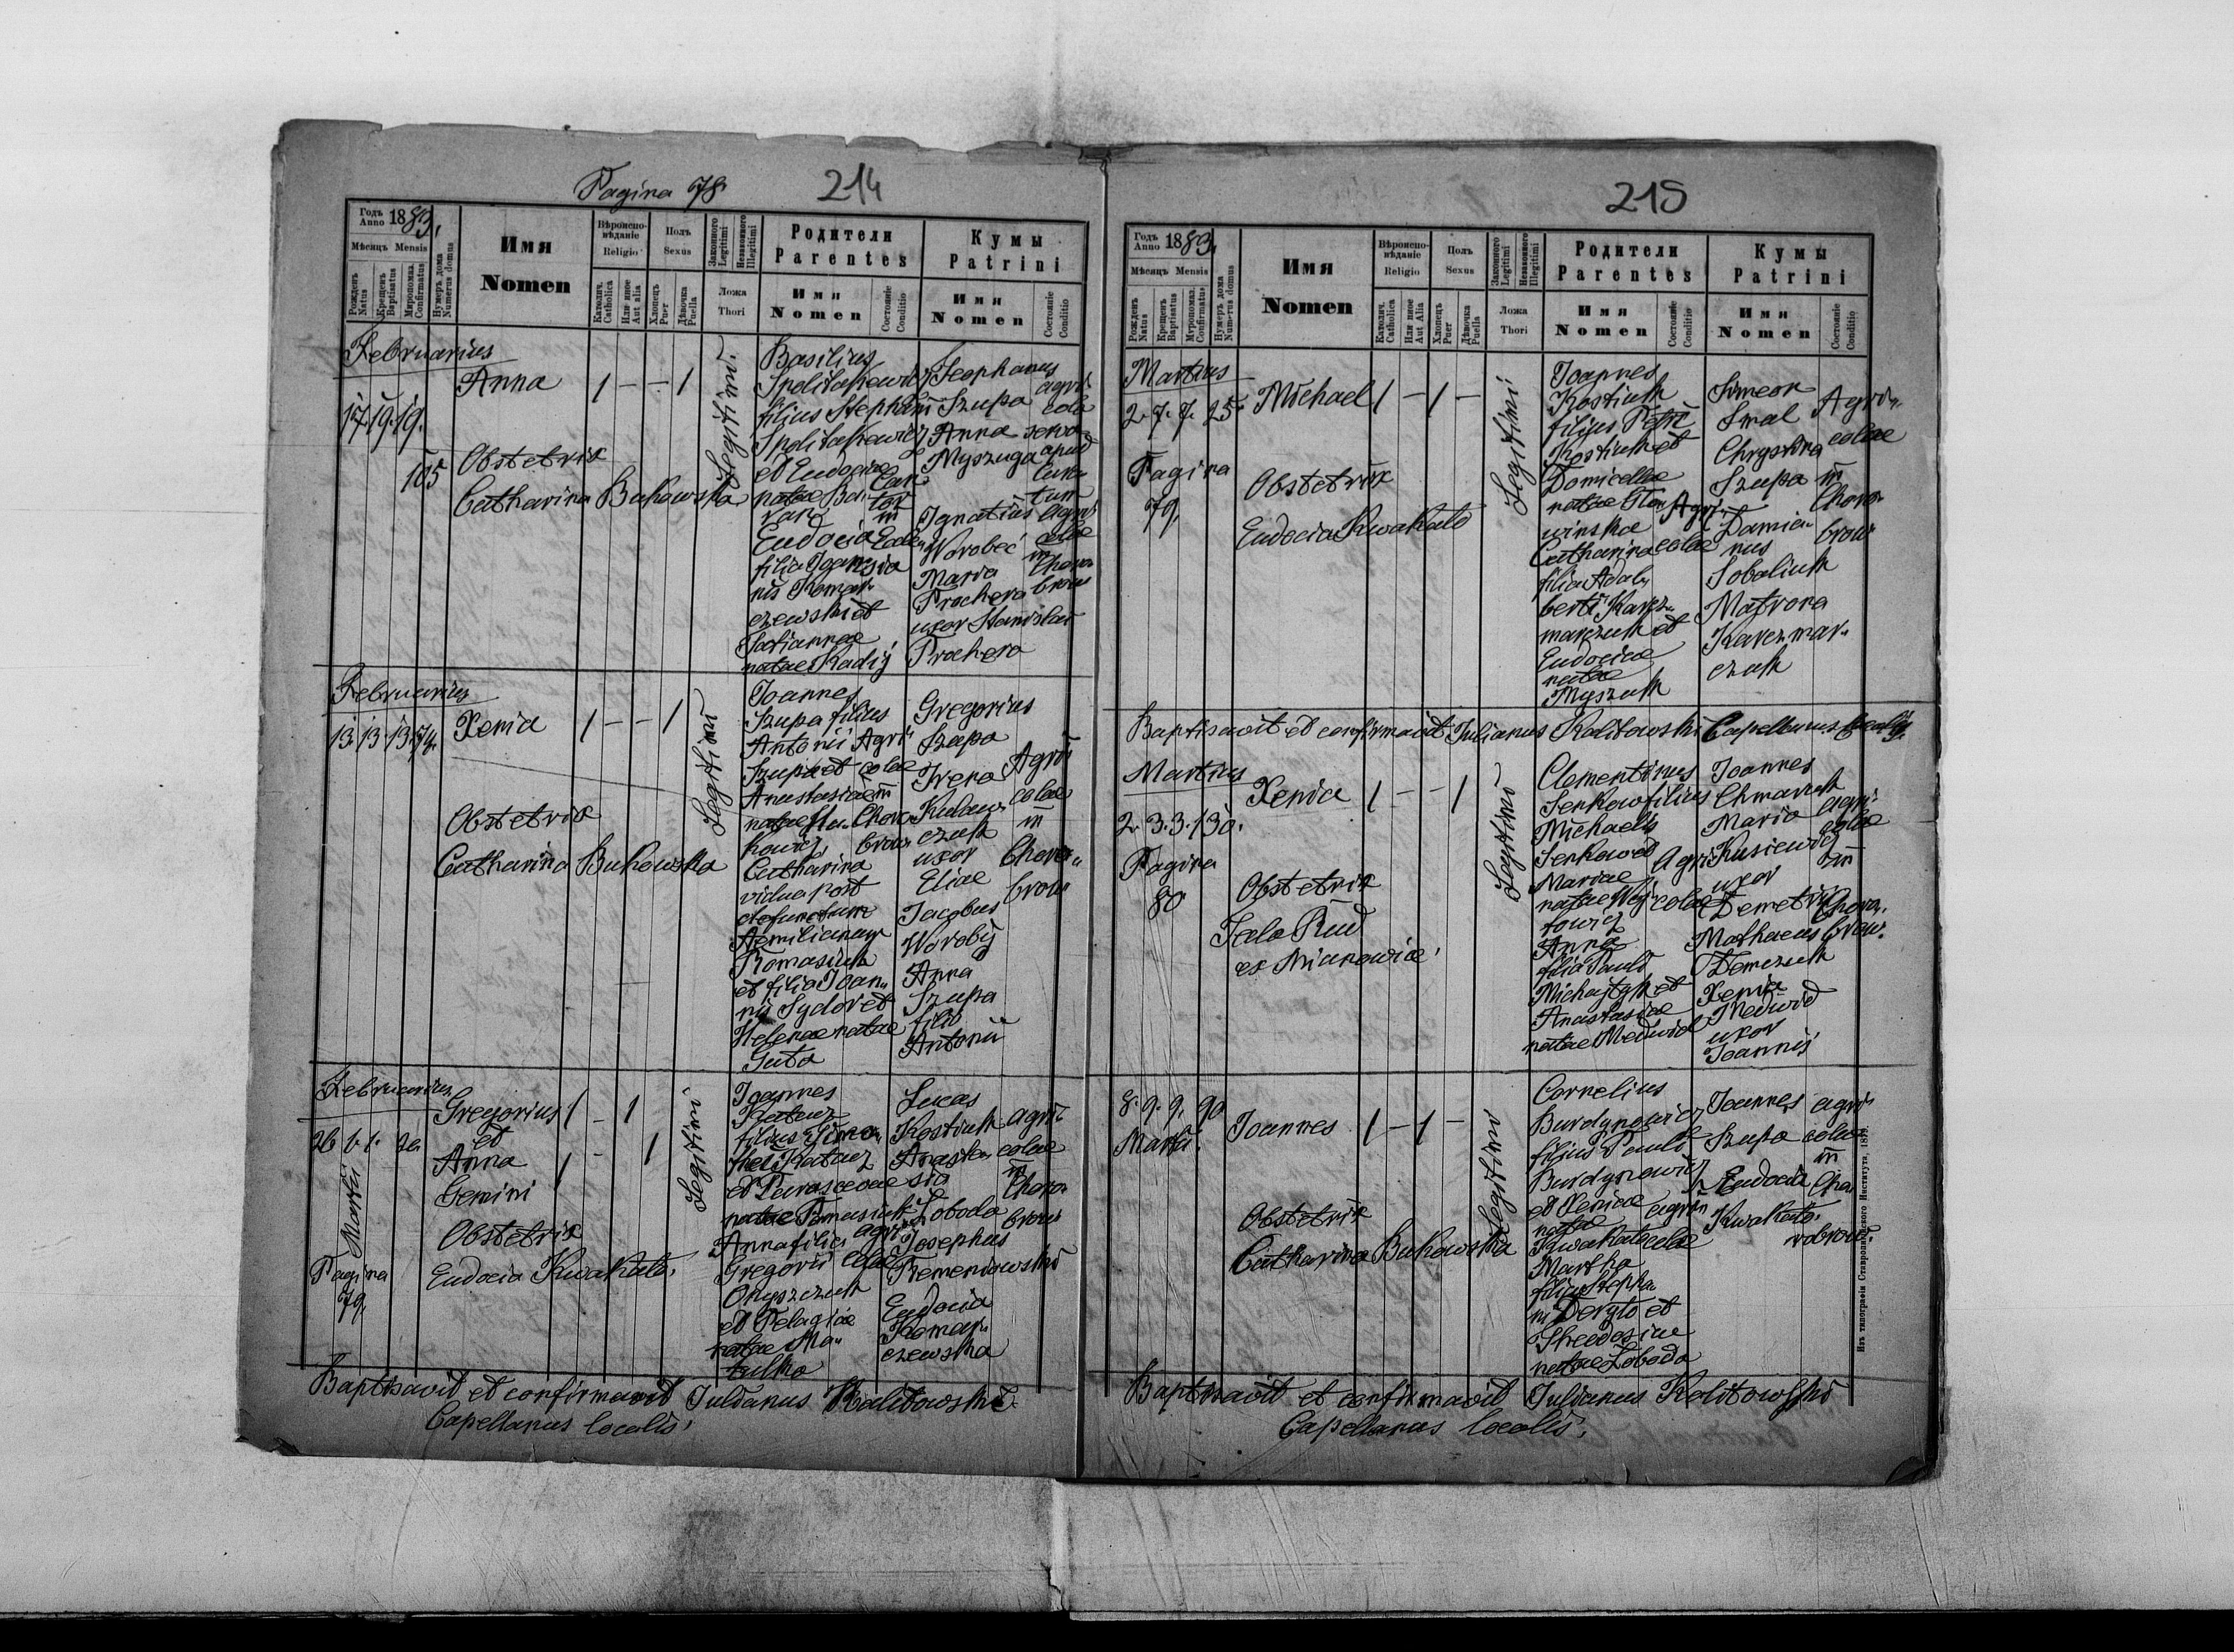 Pagina 78
214
Годъ Anno 1883.
Мѣсяцъ Mensis
Рожденъ Natus
Крещенъ Baptisatus
Мѵропомаз. Confirmatus
Нумеръ дома Numerus domus
Имя
Nomen
Вѣроисповѣданіе
Religio
Католич. Catholica
Или иное Aut alia
Полъ
Sexus
Хлопецъ Puer
Дѣвочка Puella
Законного Legitimi
Незаконного Illegitimi
Ложа
Thori
Родители
Parentes
Имя
Nomen
Состояніе Conditio
Кумы
Patrini
Имя
Nomen
Состояніе Conditio
Februarius
17. 19. 19.
105
Anna
1 - - 1
Legitimi
Obstetrix
Catharina Bukowska
Basilius
filius Stephani
et Eudociae
natae
Cantor
in
Eudocia
filia Joannis
et
Mariannae
natae Radij
Stephanus
Szupa
agricola
Anna
Myszuga
serva
apud
Ignatius
Worobeć
agricolae
in
Maria
Prochera
Chorobrow
uxor Stanislai
Prochera
Februarius
13. 13. 13. 74.
Xenia
1 - - 1
Legitimi
Obstetrix
Catharina Bukowska
Joannes
Szupa filius
Antonii
Szupa et
Agricolae
Anastasiae
in
Chorobrow
Catharina
vidua post
defunctum
Aemilianum
Romasiuk
et filia Joannis
Sydor et
Helenae natae
Guta
Gregorius
Szupa
Irena
Agricolae
in
uxor
Eliae
Chorobrow
Jacobus
Worobij
Anna
Szupa
filia
Antonii
Februarius
26 1. 1.
Martii
Pagina
79.
Gregorius
et
Anna
Gemini
1 - 1
1 - 1
Legitimi
Obstetrix
Eudocia Kwakało.
Joannes
Katucz
filius Timothei Katucz
et Parascevae
natae Romasiuk
Anna filia
agricolae
Gregorii
Onyszczuk
et Pelagiae
natae
Lucas
Kostiuk
agricolae
Anastasia
Łoboda
in
Chorobrow
Josephus
Remeniowski
Eudocia
Komarczewska
Baptisavit et confirmavit Julianus Kalitowski
Capellanus localis.
215
Годъ Anno 1883.
Мѣсяцъ Mensis
Рожденъ Natus
Крещенъ Baptisatus
Мѵропомаз. Confirmatus
Нумеръ дома Numerus domus
Имя
Nomen
Вѣроисповѣданіе
Religio
Католич. Catholica
Или иное Aut Alia
Полъ
Sexus
Хлопецъ Puer
Дѣвочка Puella
Законного Legitimi
Незаконного Illegitimi
Ложа
Thori
Родители
Parentes
Имя
Nomen
Состояніе Conditio
Кумы
Patrini
Имя
Nomen
Состояніе Conditio
Martius
2. 7. 7. 25.
Pagina
79.
Michael
1 - 1 -
Legitimi
Obstetrix
Eudocia Kwakało
Joannes
Kostiuk
filius Petri
Kostiuk et
Domicellae
natae
Agricolae
Catharina
filia Adalberti Karczmarczuk et
Eudociae
natae
Myszuk
Simeon
Smal
Agricolae
Chrystina
Szupa
in
Chorobrow
Damianus
Sobaliuk
Matrona
Karczmarczuk
Baptisavit et confirmavit Julianus Kalitowski Capellanus localis.
Martius
2. 3. 3. 130.
Pagina
80
Xenia
1 - - 1
Legitimi
Obstetrix
Jula Rud
ex Mianowice
Clementinus
Senkow filius
Michaelis
Senkow et
Mariae
natae
Agricolae
Anna
filia Pauli
et
Anastasiae
natae Medwid
Joannes
Chmaruk
Maria
Kusiewicz
agricolae
in
uxor
Demetrii
Chorobrow.
Mathaeus
Demczuk
Xenia
Medwid
uxor
Joannis
8. 9. 9. 90
Martii.
Joannes
1 - 1 -
Legitimi
Obstetrix
Catharina Bukowska
Cornelius
Burdynowicz
filius Pauli
Burdynowicz
et Xeniae
natae
Kwakało
agricolae
Martha
filia Stephani Dergło et
Theodosiae
natae Łoboda
Joannes
Szupa
agricolae
in
Eudocia
Kwakało.
Chorobrow.
Baptisavit et confirmavit Julianus Kalitowski
Capellanus localis.
Изъ типографіи Ставропигійского Института, 1879.